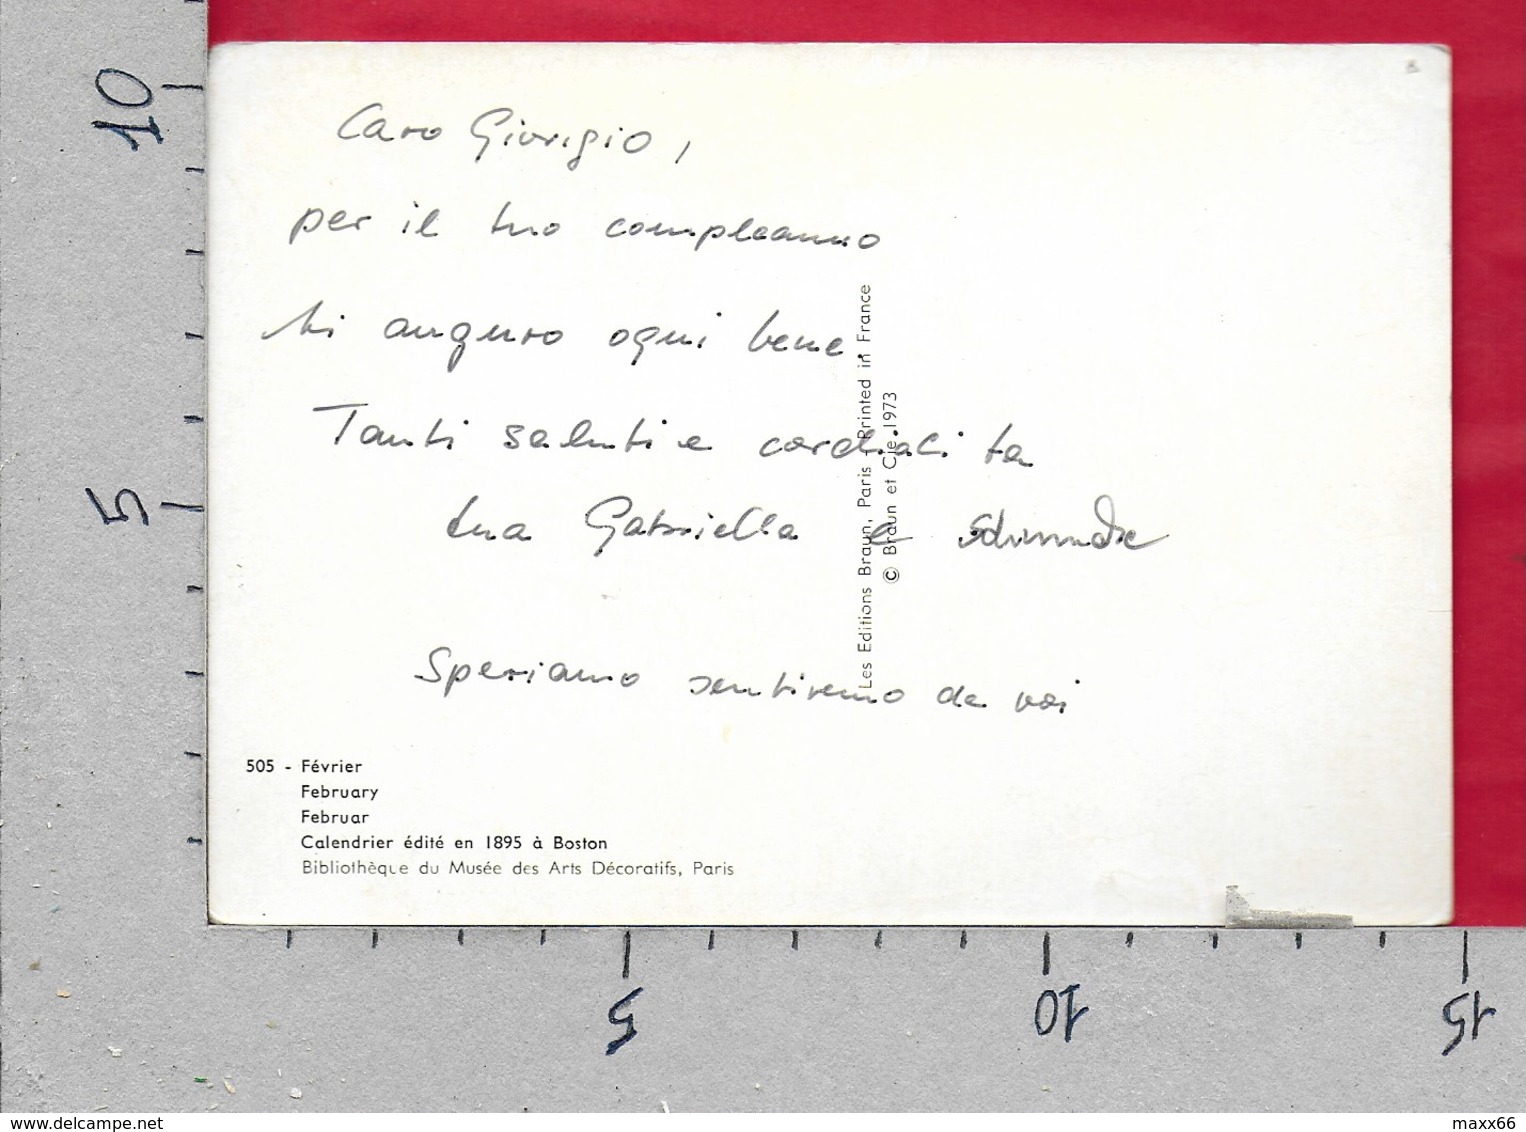 Caro Giorgio,
per il tuo compleanno
ti auguro ogni bene.
Tanti saluti e cordialita
tua Gabriella e
Speriamo sentiremo da voi
Les Editions Braun, Paris - Printed in France
© Braun et Cie 1973
505 - Février
February
Februar
Calendrier édité en 1895 à Boston
Bibliothèque du Musée des Arts Décoratifs, Paris
10
5
5
10
15
delcampe.net
maxx66